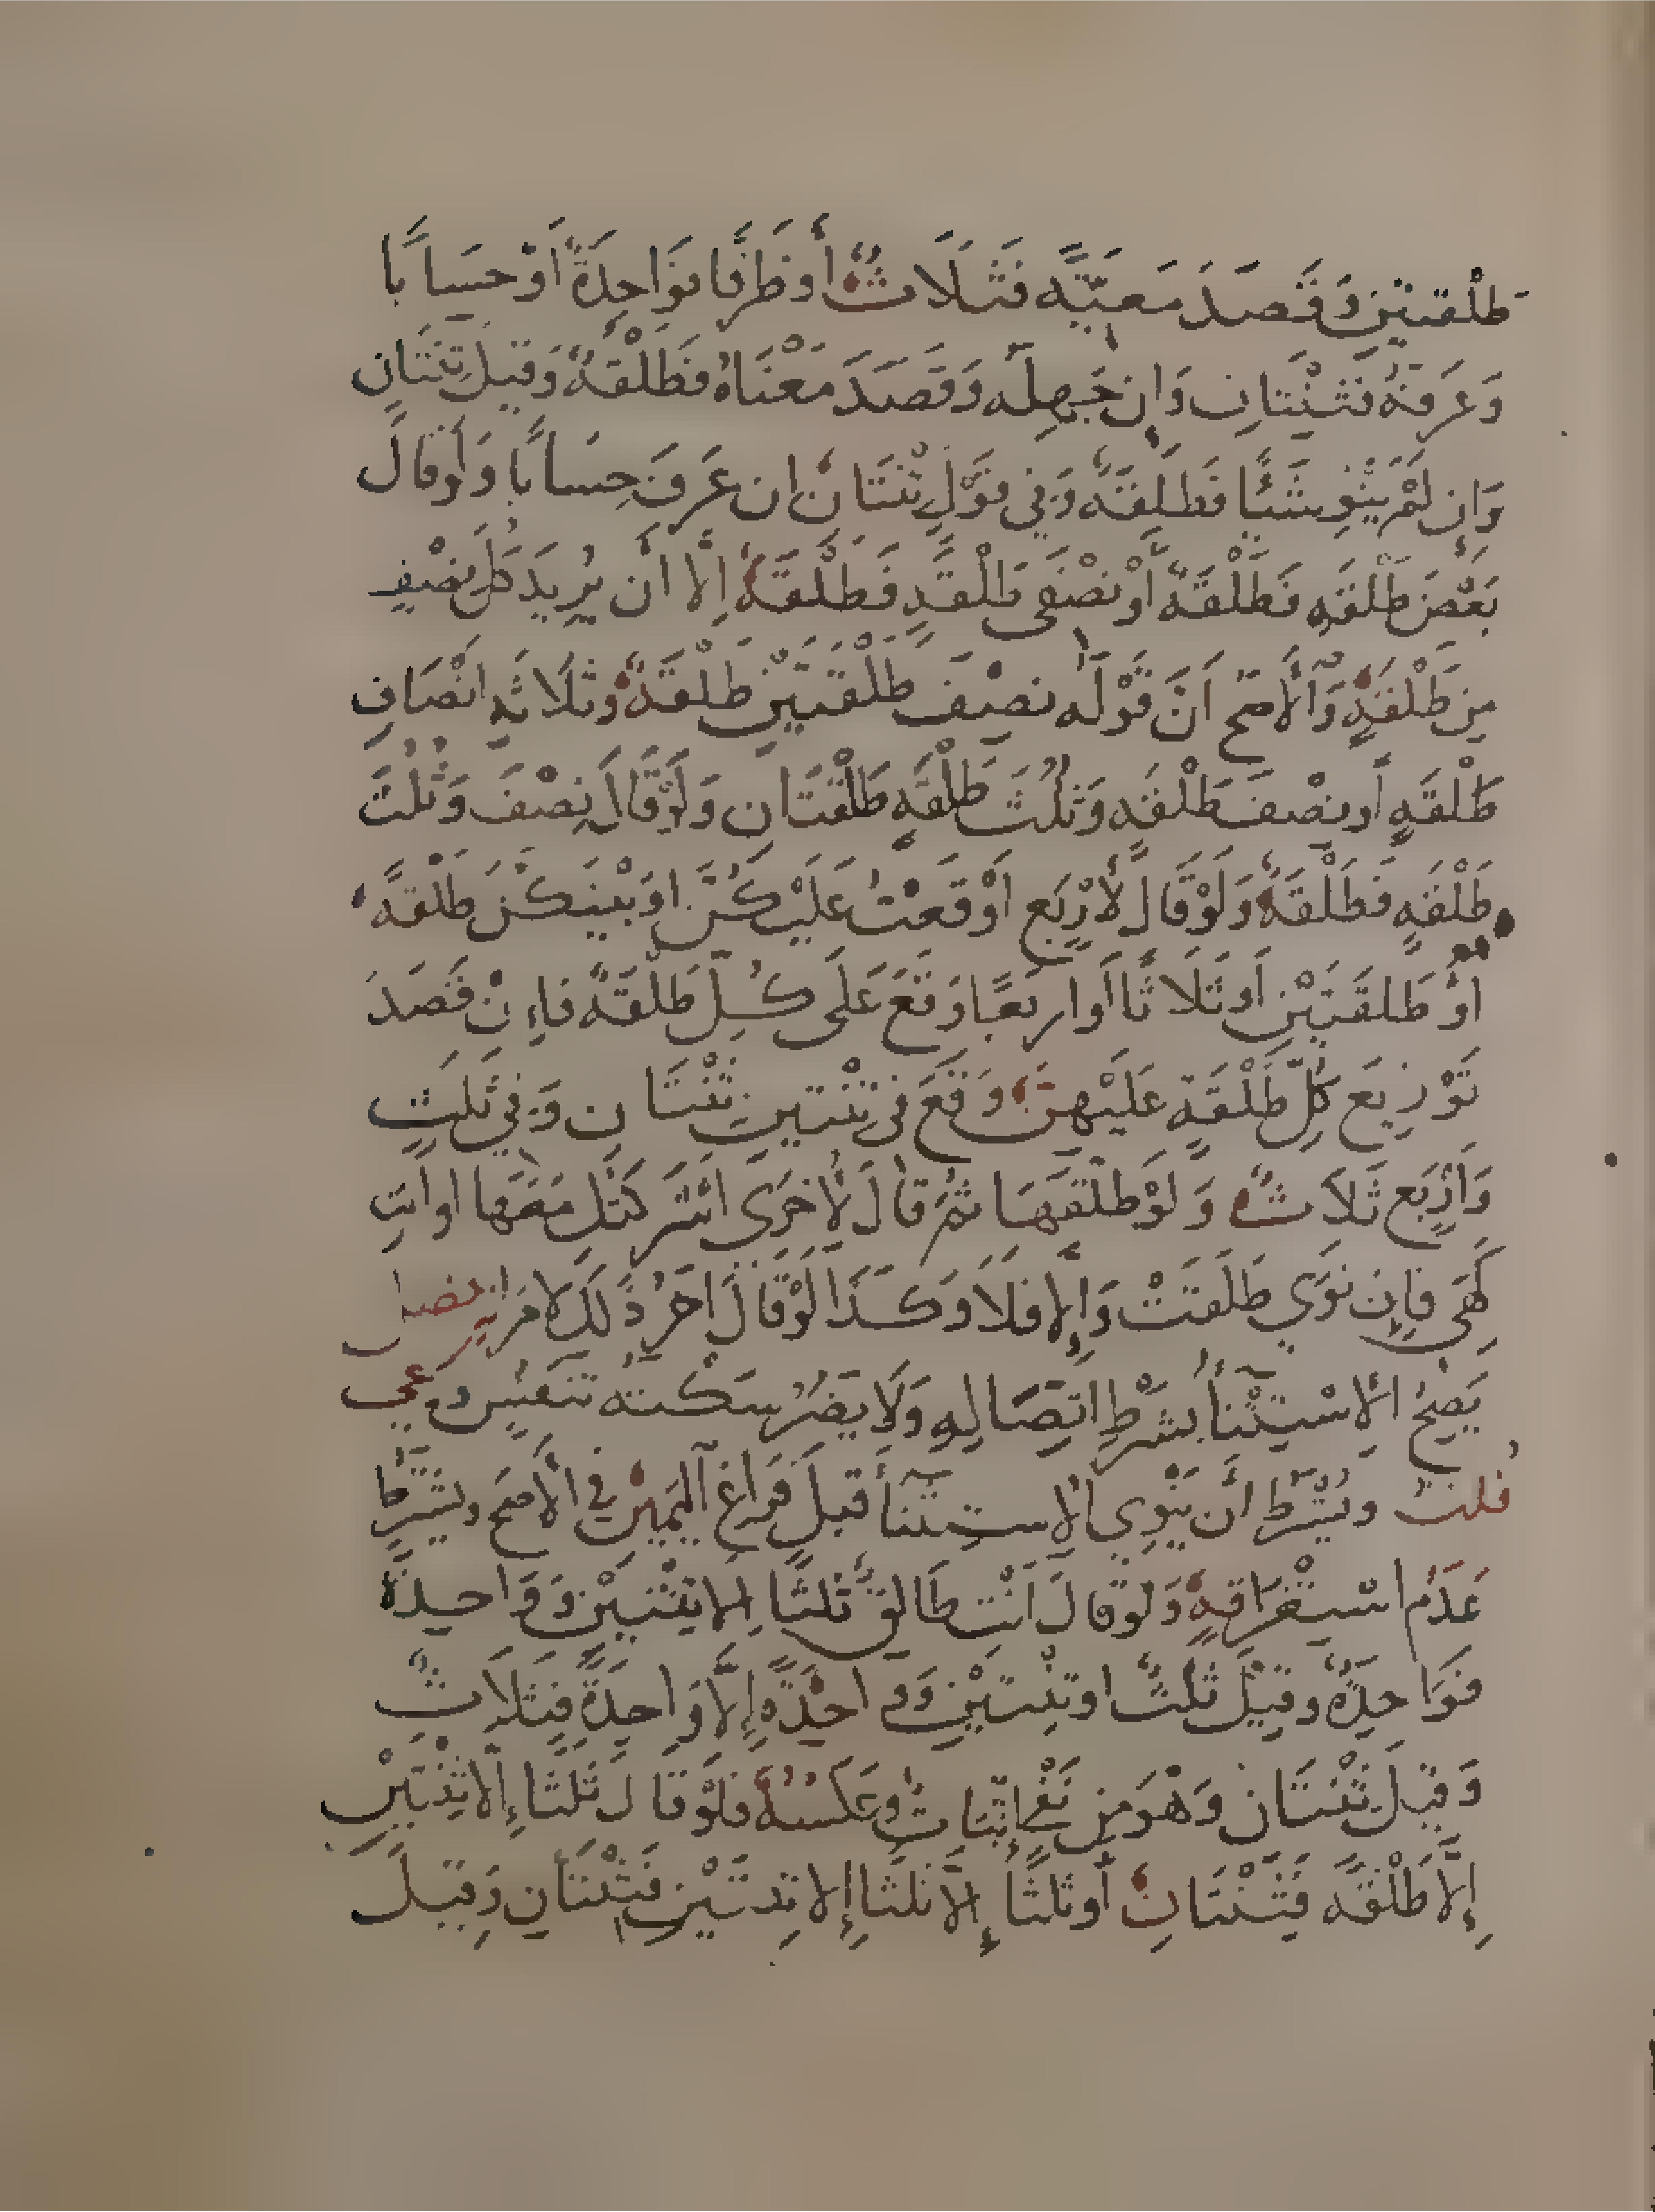 طَلْقتين وَقَصَدَ مَعيَّة فَثَلَاثٌ أَوظَرفًا فوَاحِدَةٌ اَوْ حسَابًا
وَعَرَفهُ فَثِنْتَانِ وَإِن جَهِلَه وَقَصَدَ مَعْنَاهُ فَطَلْقةٌ وَقيلَ ثِنْتَان
وَإِن لَمْ يَنْوِ شَيْئًا فَطَلقَةٌ وَفي قَوْلٍ ثنتَانِ ان عَرَفَ حِسَابًا وَلَوقالَ
بَعْضَ طَلْقَةٍ فَطَلْقَةٌ أَوْ نصْفَى طَلْقَةٍ فَطَلْقَةٌ إِلَّا أَن يُرِيدَ كُلَّ نصْفٍ
مِن طَلْقَةٍ وَالْأَصَحّ اَنَّ قَوْلَه نصْفَ طَلْقَتَيْنِ طَلْقَةٌ وثلَاثَةِ انْصَافِ
طَلْقَةٍ أَو نصْفَ طَلْقَه وَثُلُثَ طَلْقَةٍ طَلْقتَان وَلَوْقَالَ نِصْفَ وَثُلُثَ
طَلْقَةٍ فَطَلْقَةٌ وَلَوْقَالَ لأَرْبَع اَوْقَعْتُ عَلَيْكُنَّ اوَبَيْنَكُنَّ طَلْقةً
اوْ طَلقَتَيْنِ اَوثَلَاثًا اَوارَبَعًا وَقَعَ عَلَى كُلٍّ طَلْقَةٌ فإِنْ قَصَدَ
تَوْزِيَع كُلِّ طَلْقَةٍ عَلَيْهِنَّ وَقَعَ في ثِنْتَينِ ثِنْتَان وَفي ثَلَثٍ
وَأَرْبَع ثَلَاثٌ وَلَوْ طَلقَهَا ثمَّ قالَ لأُخرَى اشْرَكتُك مَعَهَا اوانتِ
كَهِيَ فإِن نوَي طَلَقَتْ وَإِلَّا فلَا وَكَذَا لَوْقَالَ اخَرُ ذَلِكَ لامرَاته فصل
يَصِحُّ الاسْتِثْنَاُ بشَرْطِ اتِّصَالِهِ وَلَا يَضُرُّ سَكْتة تنَفُّسٍ وعي
قُلتُ وَيُشْترَطُ أَن يَنْوِي الاسْتِثْنَاَ قَبلَ فَراغِ الْيَمِيْنِ فِي الْأَصَح ويشتَرطُ
عَدَمُ اسْتِغْرَاقِهِ وَلَوقالَ اَنْتِ طَالقٌ ثَلثًا إلاثِنْتَيْنِ وَوَاحِدَةً
فَوَاحِدَةٌ وقِيْلَ ثلثٌ اوثِنْتَيْنِ وَوَاحِدَةً إِلَّا وَاحِدَةً فثَلَاثٌ
وَقيلَ ثِنْتَان وَهْوَ مِن نَفْي إِثْبَاتٌ وعَكْسُهُ فلَوْقَالَ ثَلَثًا إِلَّا ثِنْتَيْنِ
إِلَّا طَلْقَةً فَثِنْتَانِ أَوثلثًا إِلَّا ثَلثًا إِلا ثِنتَيْنِ فَثِنْتَانِ وَقيلَ